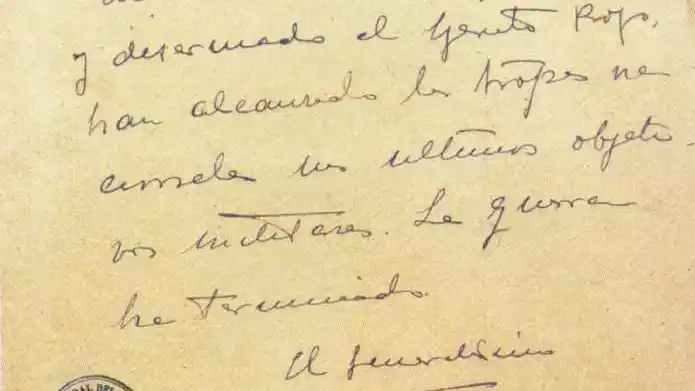 y desarmado el Ejército Rojo,
han alcanzado las tropas na
cionales sus últimos objeti-
vos militares. La guerra
ha terminado.
El Generalísimo
RAL DEL